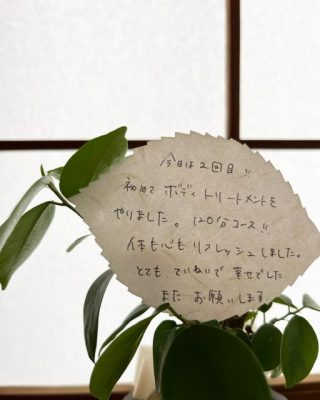 今日は2回目!!
初めて ボディトリートメントを
やりました。120分コース!!
体も心もリフレッシュしました。
とても ていねいで 幸せでした
また お願いします